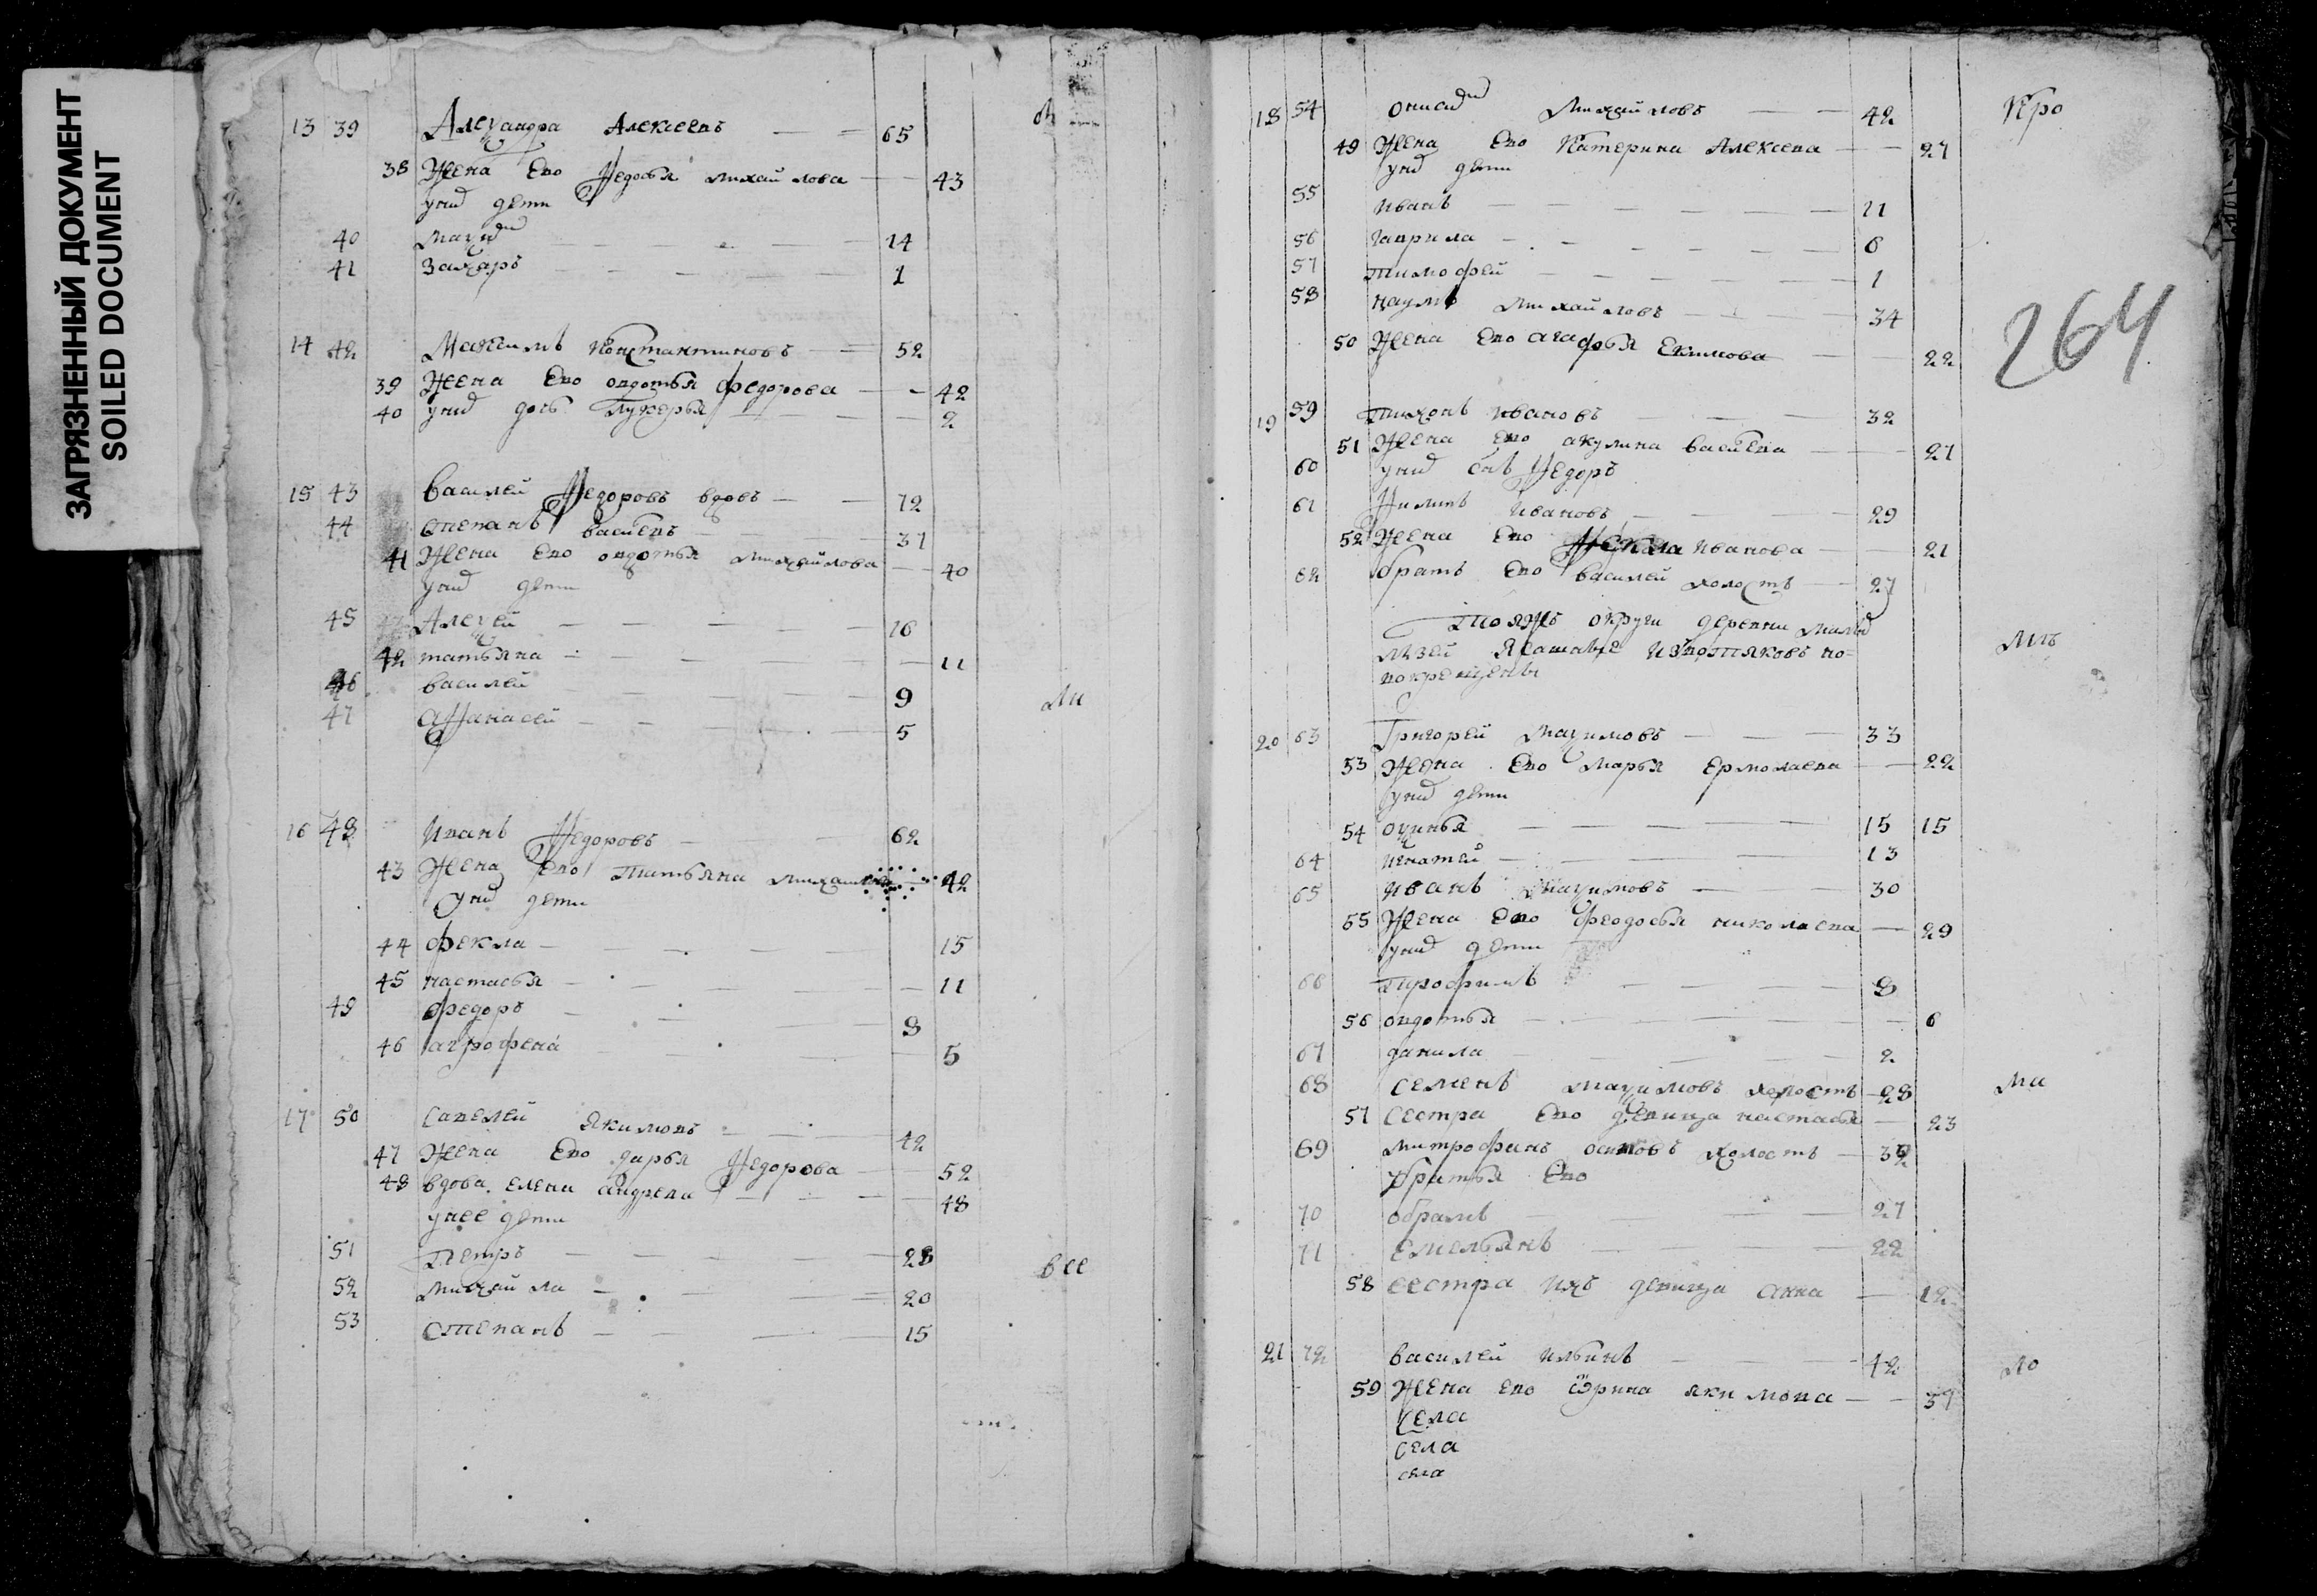 ЗАГРЯЗНЕННЫЙ ДОКУМЕНТ
SOILED DOCUMENT
13 39 Алеѯандра Алексеевъ — — 65
38 Жена Ево Ѳедосья михайлова — — 43
унид дети
40 маѯи — — — 14
41 Захаръ — — — 1
14 42 Максимъ Констянтиновъ — 52
39 Жена Ево овдотья федорова — — 42
40 унид дочь Глукерья — — 2
15 43 Василей Ѳедоровъ вдовъ — — 72
44 степанъ василевъ — 37
41 Жена Ево овдотья михайлова — 40
унид дети
45 Алеѯей — — — 16
42 татьяна — — — 11
46 василей — — — 9
47 аѲанасей — — — 5
ли
16 48 Иванъ Ѳедоровъ — 62
43 Жена Ево Татьяна — 42
унид дети
44 фекла — — — 15
45 настасья — — — 11
49 федоръ — — — 8
46 агрофена — — — 5
17 50 савелей якимовъ — — 42
47 Жена Ево дарья Ѳедорова — 52
48 вдова елена андрева — — 48
унее дети
51 Петръ — — — 28
все
52 михайла — — — 20
53 степанъ — — — 15
18 54 михайловъ — — 42
Про
49 Жена Ево Катерина Алексева — — 27
унид дети
55 иванъ — — — 11
56 гаврила — — — 6
57 тимофей — — — 1
58 наумъ михайловъ — — 34
264
50 Жена Ево агафья Екимова — — 22
19 59 тихонъ ивановъ — — 32
51 Жена Ево акулина василева — — 27
60 унид снъ Ѳедоръ
61 Ѳилипъ ивановъ — — 29
52 Жена Ево Ѳекла иванова — — 21
62 братъ Ево василей холостъ — 27
Тояжъ округи деревни
Ясашные извотяковъ но-
вокрещены
20 63 Григорей маѯимовъ — — 33
53 Жена Ево марья ермолаева — — 22
унид дети
54 оѯинья — — — 15 15
64 игнатей — — — 13
65 иванъ маѯимовъ — — 30
55 Жена Ево феодосья николаева — 29
унид дети
66 трофимъ — — — 8
56 овдотья — — — 6
67 данила — — — 2
68 семенъ маѯимовъ холостъ — 28
ма
57 сестра Ево девица настасья — 23
69 митрофанъ осиповъ холостъ — 32
братья Ево
70 обрамъ — — — 27
71 емельянъ — — — 22
58 сестра ихъ девица анна — 12
21 72 василей ильинъ — — 42
ло
59 Жена ево якимова — — 37
села
села
села